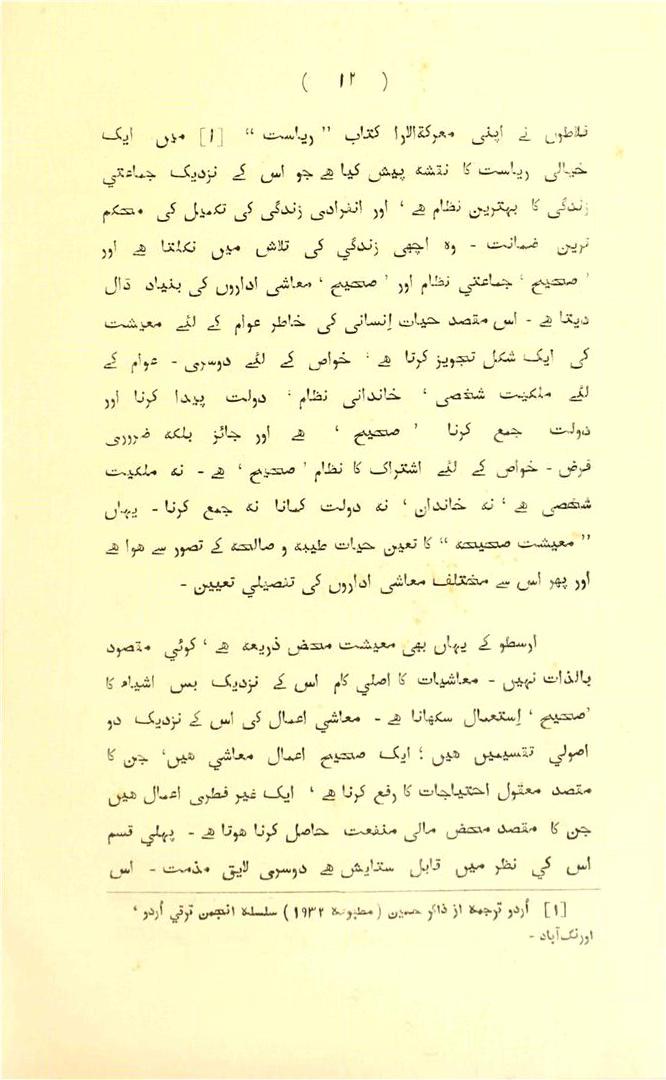 ( ۱۲ )
فلاطوں نے اپنی معرکۃالارا کتاب ”ریاست“ [۱] میں ایک
خیالی ریاست کا نقشہ پیش کیا ہے جو اس کے نزدیک جماعتي
زندگی کا بہترین نظام ہے ‘ اور انفرادی زندگی کی تکمیل کی محکم
ترین ضمانت - وہ اچھی زندگي کی تلاش میں نکلتا ہے اور
’صحیح‘ جماعتي نظام اور ’صحیح‘ معاشی اداروں کی بنیاد ڈال
دیتا ہے - اس مقصد حیات اِنسانی کی خاطر عوام کے لئے معیشت
کی ایک شکل تجویز کرتا ہے ‘ خواص کے لئے دوسری - عوام کے
لئے ملکیت شخصی ‘ خاندانی نظام ‘ دولت پیدا کرنا اور
دولت جمع کرنا ’صحیح‘ ہے اور جائز بلکہ ضروری
فرض - خواص کے لئے اشتراک کا نظام ’صحیح‘ ہے - نہ ملکیت
شخصی ہے ‘ نہ خاندان ‘ نہ دولت کمانا نہ جمع کرنا - یہاں
”معیشت صحیحہ“ کا تعین حیات طیبہ و صالحہ کے تصور سے ہوا ہے
اور پھر اس سے مختلف معاشی اداروں کی تفصیلي تعیین -
ارسطو کے یہاں بھی معیشت محض ذریعہ ہے ‘ کوئي مقصود
بالذات نہیں - معاشیات کا اصلي کام اس کے نزدیک بس اشیاء کا
’صحیح‘ اِستعمال سکھانا ہے - معاشي اعمال کی اس کے نزدیک دو
اصولي تقسیمیں ہیں ؛ ایک صحیح اعمال معاشي ہیں‘ جن کا
مقصد معقول احتیاجات کا رفع کرنا ہے ‘ ایک غیر فطری اعمال ہیں
جن کا مقصد محض مالی منفعت حاصل کرنا ہوتا ہے - پہلي قسم
اس کي نظر میں قابل ستایش ہے دوسری لایق مذمت - اس
[۱] اُردو ترجمہ از ذاکر حسین (مطبوعہ ۱۹۳۲) سلسلہ انجمن ترقي اُردو ‘
اورنگ‌آباد -